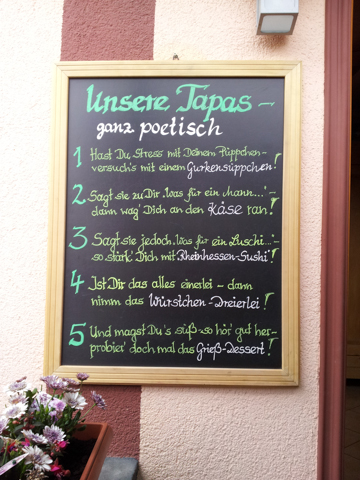 Unsere Tapas –
ganz poetisch
1 Hast Du Stress mit Deinem Püppchen –
versuch's mit einem Gurkensüppchen!
2 Sagt sie zu Dir „Was für ein Mann...“ –
dann wag' Dich an den Käse ran!
3 Sagt sie jedoch „Was für ein Luschi...“ –
so stärk' Dich mit "Rheinhessen-Sushi"!
4 Ist Dir das alles einerlei – dann
nimm das Würstchen-Dreierlei!
5 Und magst Du's süß – so hör' gut her –
probier' doch mal das Grieß-Dessert!